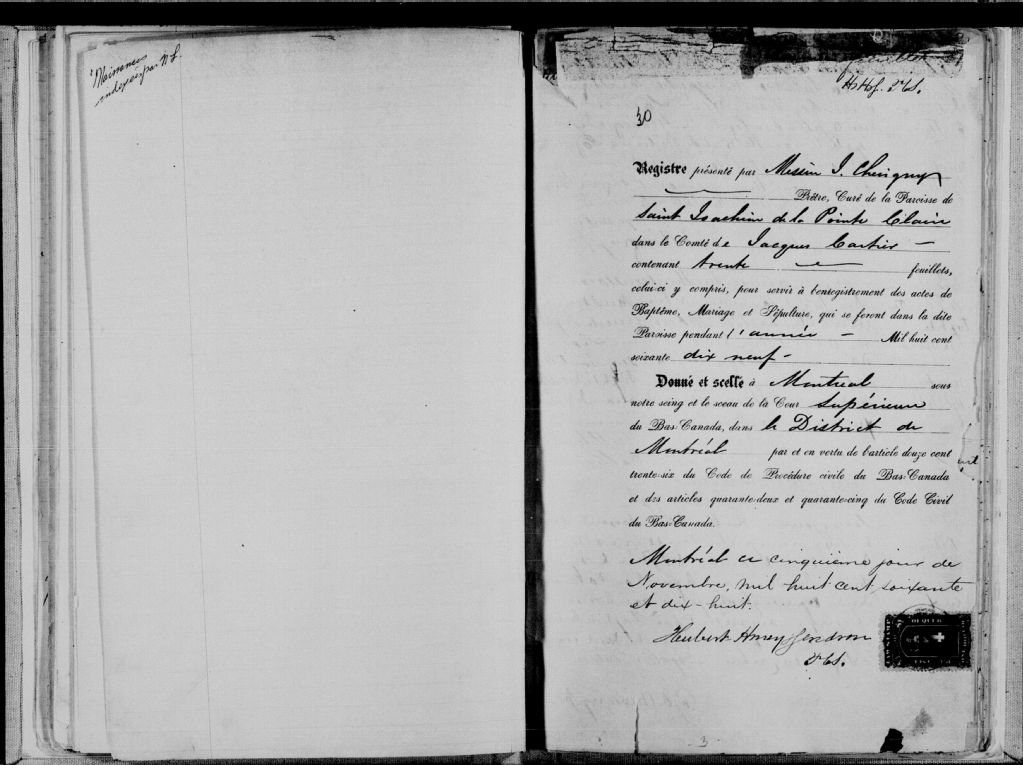 Naissances
indexées par
feuillet
HHG. D.P.S.
30
Registre présenté par Messire J. Chevigny
Prêtre, Curé de la Paroisse de
Saint Joachim de la Pointe Claire
dans le Comté de Jacques Cartier —
contenant trente — feuillets,
celui-ci y compris, pour servir à l'enregistrement des actes de
Baptême, Mariage et Sépulture, qui se feront dans la dite
Paroisse pendant l'année — Mil huit cent
soixante dix neuf —
Donné et scellé à Montréal sous
notre seing et le sceau de la Cour Supérieure
du Bas-Canada, dans le District de
Montréal par et en vertu de l'article douze cent
trente-six du Code de Procédure civile du Bas-Canada
et des articles quarante-deux et quarante-cinq du Code Civil
du Bas-Canada.
Montréal ce cinquième jour de
Novembre, mil huit cent soixante
et dix-huit.
Hubert Honey Gendron
QUEBEC
3